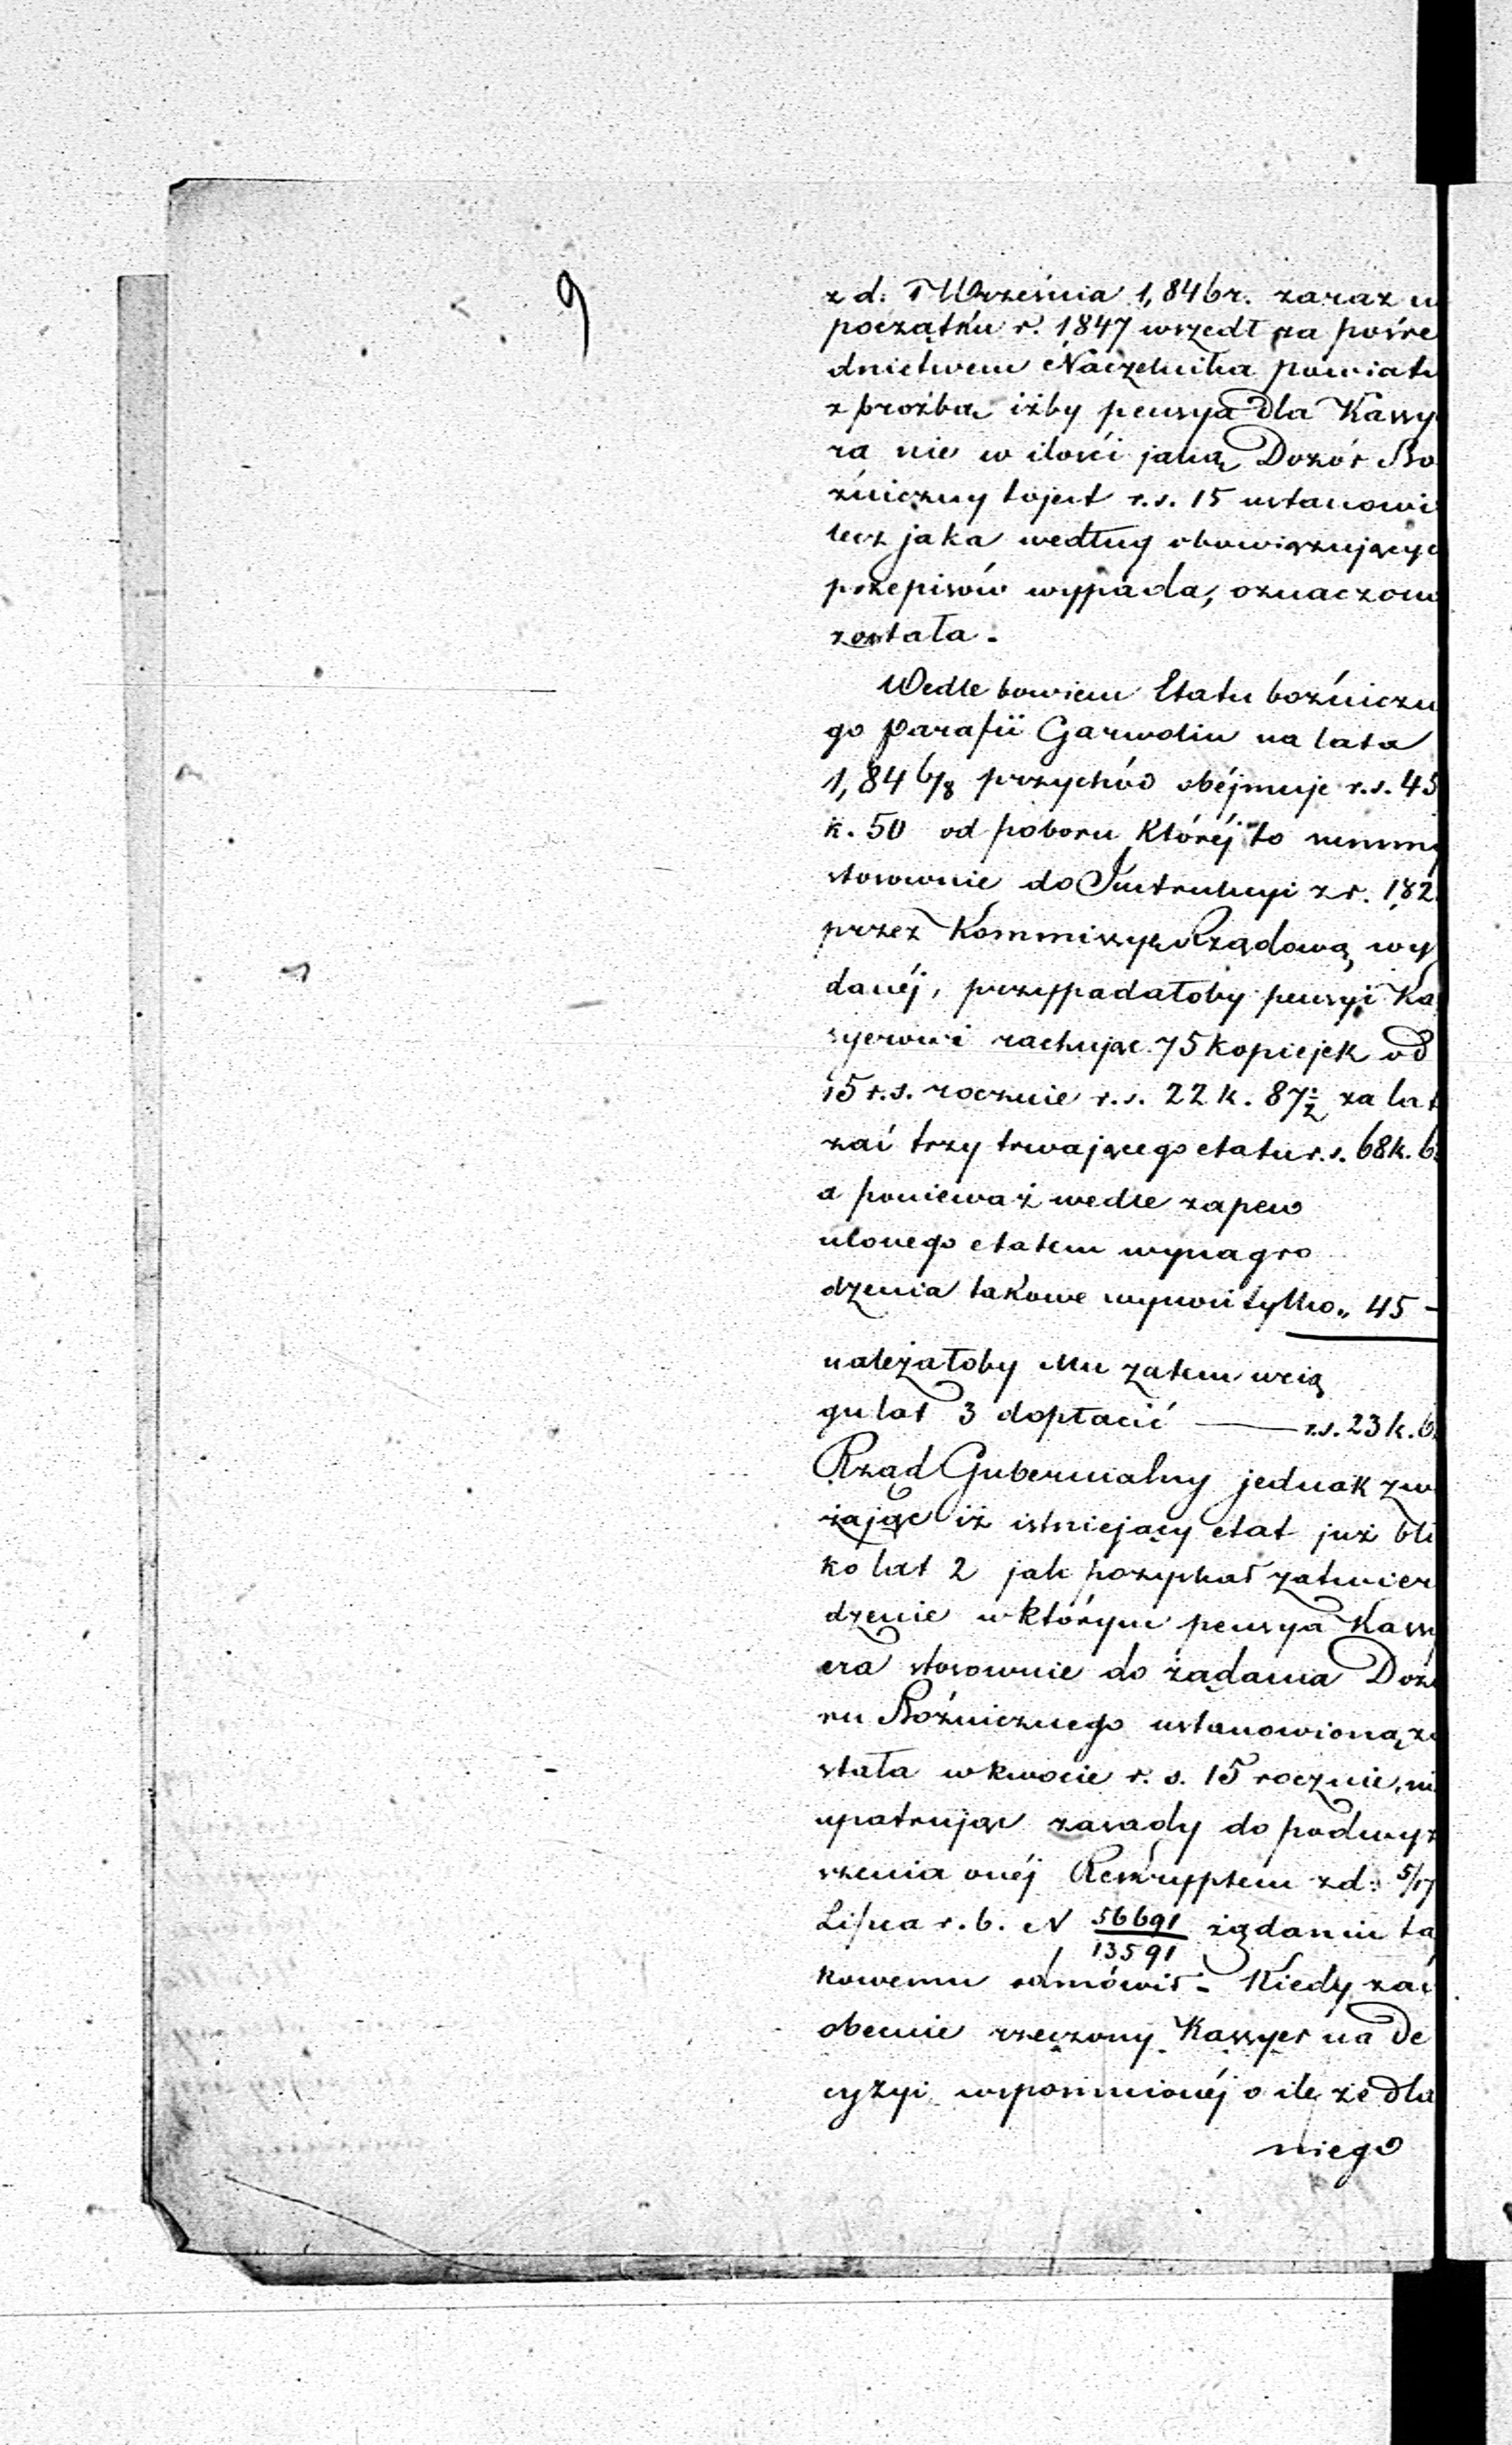 9
z d: 7 Września 1,846 r. zaraz w
początku r. 1847 wszedł za pośre
dnictwem Naczelnika powiatu
z proźbą iżby pensya dla Kassy
ra nie w ilości jaką Dozór Bo
źniczny tojest r.s. 15 ustanowi
lecz jaka według obowiązujący
przepisów wypada, oznaczon
została.
Wedle bowiem Etatu boźniczn
go parafii Garwolin na lata
1,84 6/8 przychód obéjmuje r.s. 45
k. 50 od poboru któréj to summy
stosownie do Instrukcyi z r. 182
przez Kommissyą Rządową wy
danéj, przypadałoby pensyi Ka
syerowi rachując 75 kopiejek od
15 r.s. rocznie r.s. 22 k. 87½ za lat
zaś trzy trwającego etatu r.s. 68 k. 6
a ponieważ wedle zapew
nionego etatem wynagro
dzenia takowe wynosi tylko „ 45 -
należałoby Mu zatem wcią
gu lat 3 dopłacić — r.s. 23 k. 6
Rząd Gubernialny jednak zwa
żając iż istniejący etat już bli
ko lat 2 jak pozyskał zatwier
dzenie w którym pensya Kassy
era stosownie do żądania Dozo
ru Boźnicznego ustanowioną zo
stała w kwocie r. s. 15 rocznie, ni
upatrując zasady do podwyż
szenia onéj Reskryptem z d: 5/17
Lipca r. b. N 56691/13591 żądaniu ta
kowemu odmówił - Kiedy zaś
obecnie rzeczony Kassyer na De
cyzyi wspomnionéj o ile że dla
niego